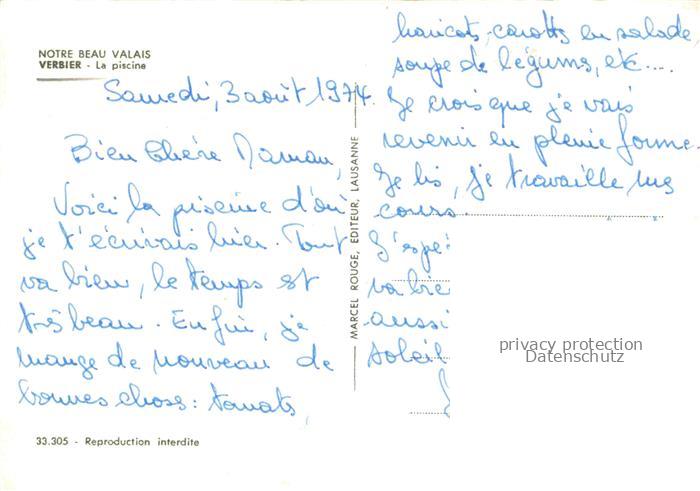 NOTRE BEAU VALAIS
VERBIER - La piscine
Samedi, 3 août 1974.
Bien Chère Maman,
Voici la piscine d'où
je t'écrivais hier. Tout
va bien, le temps est
très beau. Enfin, je
mange de nouveau de
bonnes choses: tomates,
33.305 - Reproduction interdite
MARCEL ROUGE, EDITEUR, LAUSANNE
haricots, carottes en salade,
soupe de légumes, etc....
Je crois que je vais
revenir en pleine forme.
Je lis, je travaille mes
cours.
J'espè
va bie
aussi
soleil
privacy protection
Datenschutz